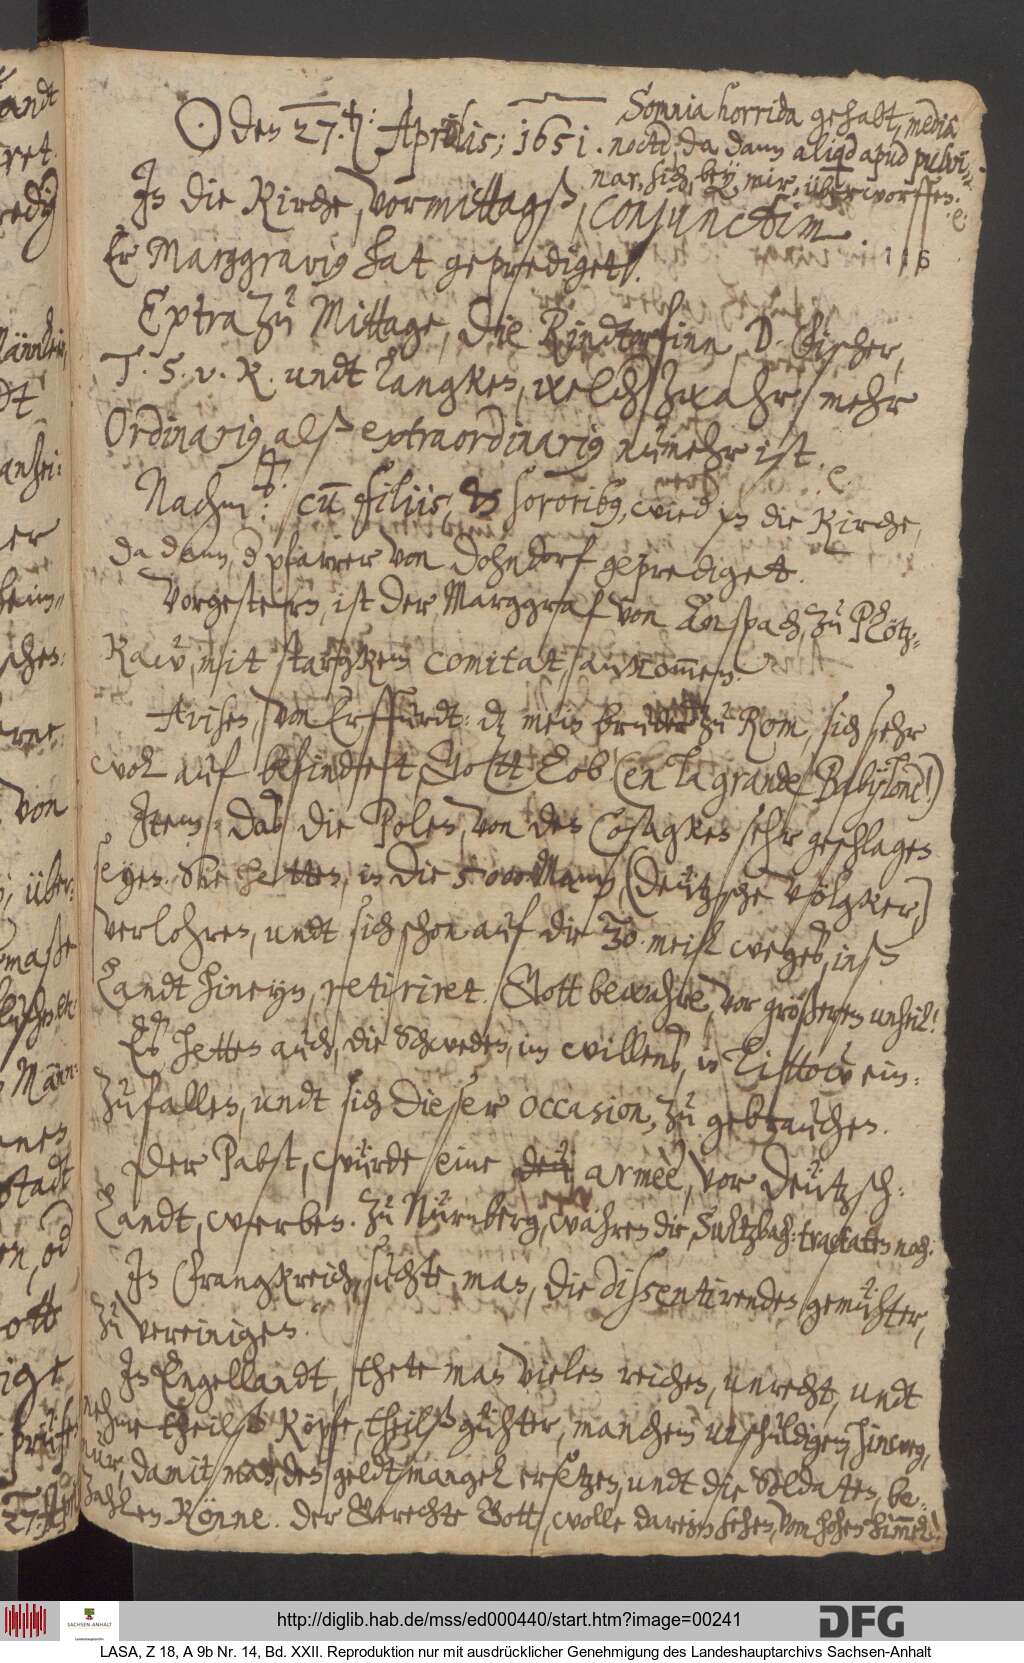 ☉ den 27.ten: Aprilis; 1651.
Somnia horrida gehabt, media
nocte: da dann aliquid apud pulvi¬
nar, sich bey mir, überworffen. e.
In die Kirche, vormittagß, conjunctim.
Er Marggravius hat geprediget.
116
Extra zu Mittage, die Rindtorfinn D. Fischer,
T. S. v. R. undt Langken, welch zwahr, mehr
Ordinarius alß extraordinarius numehr ist.
Nachm: cum filiis, & sororibus, wied in die Kirche,
da dann, d pfarrer von Dohndorf geprediget.
Vorgestern, ist der Marggraf von Anspach, zu Plötz¬
Kaw, mit starckem comitat, ankommen.
Avisen, von Erffurdt: dz mein bruder zu Rom, sich sehr
wol auf befindet Gott Lob (en la grande Babylone!)
Item: daß die Polen, von den Cosagken sehr geschlagen
seyen. Sie hetten, in die 5000 Mann, (deützsche völgker,)
verlohren, undt sich schon auf die 30 meil weges, inß
Landt hineyn, retiriret. Gott bewahre, vor größerem unheil!
Es hetten auch, die Schweden, im willens, in Littow ein¬
zufallen, undt sich dieser occasion, zu gebrauchen.
Der Pabst, würde eine deu armèe, vor Deützsch¬
Landt, werben. Zu Nürnberg, wahren die Sultzbach: tractaten noch.
In Frangkreich, suchte man, die dissentirenden gemühter,
zu vereinigen.
In Engellandt, thete man vielen reichen, unrecht, undt
nehme theilß Köpfe, theilß gühter, manchem unschuldigem, hinweg,
nur, damit man, den geldtmangel ersetzen, undt die Soldaten, be¬
zahlen Könne. Der Gerechte Gott, wolle darein sehen, vom hohen himmel!
http://diglib.hab.de/mss/ed000440/start.htm?image=00241
SACHSEN-ANHALT
DFG
LASA, Z 18, A 9b Nr. 14, Bd. XXII. Reproduktion nur mit ausdrücklicher Genehmigung des Landeshauptarchivs Sachsen-Anhalt